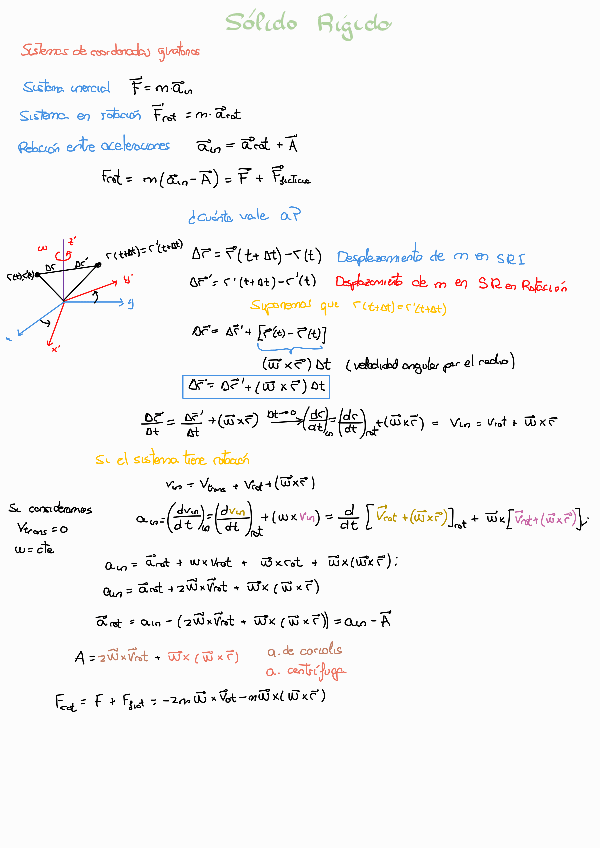 Sólido Rígido
Sistemas de coordenadas giratorios
Sistema inercial F⃗ = m·a⃗in
Sistema en rotación F⃗rot = m·a⃗rot
Relación entre aceleraciones a⃗in = a⃗rot + A⃗
Frot = m(a⃗in − A⃗) = F⃗ + F⃗ficticia
¿Cuánto vale a?
ω z'
r(t+Δt) = r'(t+Δt)
Δr Δr'
y'
y
x
x'
Δr⃗ = r⃗(t+Δt) − r(t) Desplazamiento de m en SRI
Δr⃗' = r'(t+Δt) − r'(t) Desplazamiento de m en SR en Rotación
Suponemos que r(t+Δt) = r'(t+Δt)
Δr⃗ = Δr⃗' + [r⃗'(t) − r⃗(t)]
(ω⃗ × r⃗) Δt (velocidad angular por el radio)
Δr⃗ = Δr⃗' + (ω⃗ × r⃗) Δt
Δr⃗/Δt = Δr⃗'/Δt + (ω⃗ × r⃗) Δt→0 (dr/dt)in = (dr/dt)rot + (ω⃗ × r⃗) = Vin = Vrot + ω⃗ × r⃗
Si el sistema tiene rotación
Vin = Vtrans + Vrot + (ω⃗ × r⃗)
Si consideramos
Vtrans = 0
ω = cte
ain = (dvin/dt)in = (dvin/dt)rot + (ω × vin) = d/dt [V⃗rot + (ω⃗ × r⃗)]rot + ω⃗ × [V⃗rot + (ω⃗ × r⃗)];
ain = a⃗rot + ω × vrot + ω⃗ × vrot + ω⃗ × (ω⃗ × r⃗);
ain = a⃗rot + 2ω⃗ × V⃗rot + ω⃗ × (ω⃗ × r⃗)
a⃗rot = ain − (2ω⃗ × V⃗rot + ω⃗ × (ω⃗ × r⃗)) = ain − A⃗
A = 2ω⃗ × V⃗rot + ω⃗ × (ω⃗ × r⃗) a. de coriolis
a. centrífuga
Frot = F + Ffict = −2m ω⃗ × V⃗rot − m ω⃗ × (ω⃗ × r⃗)